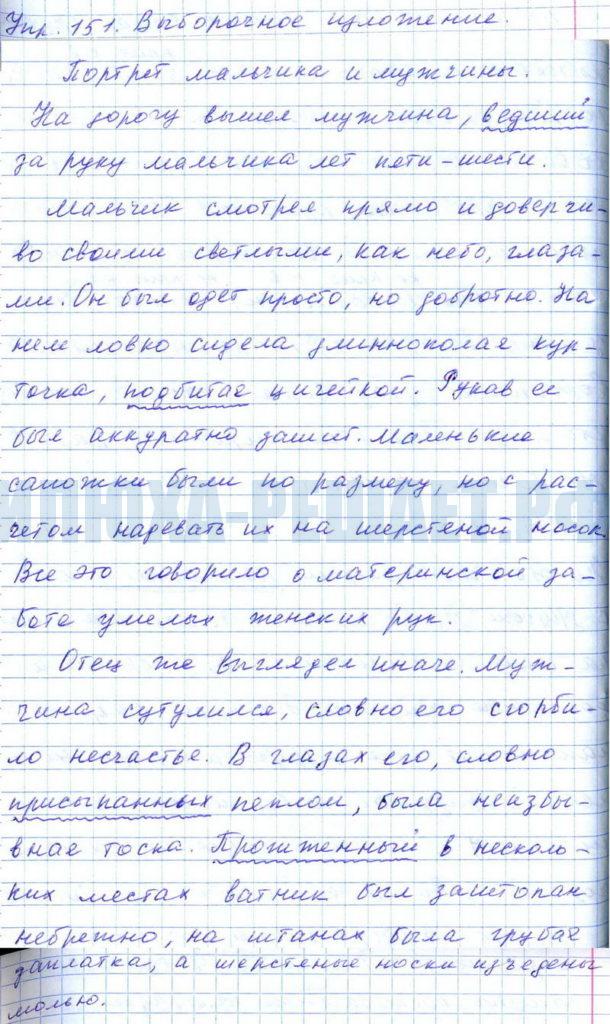 Упр. 151. Выборочное изложение.
Портрет мальчика и мужчины.
На дорогу вышел мужчина, ведший
за руку мальчика лет пяти-шести.
Мальчик смотрел прямо и доверчи-
во своими светлыми, как небо, глаза-
ми. Он был одет просто, но добротно. На
нем ловко сидела длиннополая кур-
точка, подбитая цигейкой. Рукав ее
был аккуратно зашит. Маленькие
сапожки были по размеру, но с рас-
четом надевать их на шерстяной носок
Все это говорило о материнской за-
боте умелых женских рук.
Отец же выглядел иначе. Муж-
чина сутулился, словно его сгорби-
ло несчастье. В глазах его, словно
присыпанных пеплом, была неизбы-
вная тоска. Прожженный в несколь-
ких местах ватник был заштопан
небрежно, на штанах была грубая
заплатка, а шерстяные носки изъедены
молью.